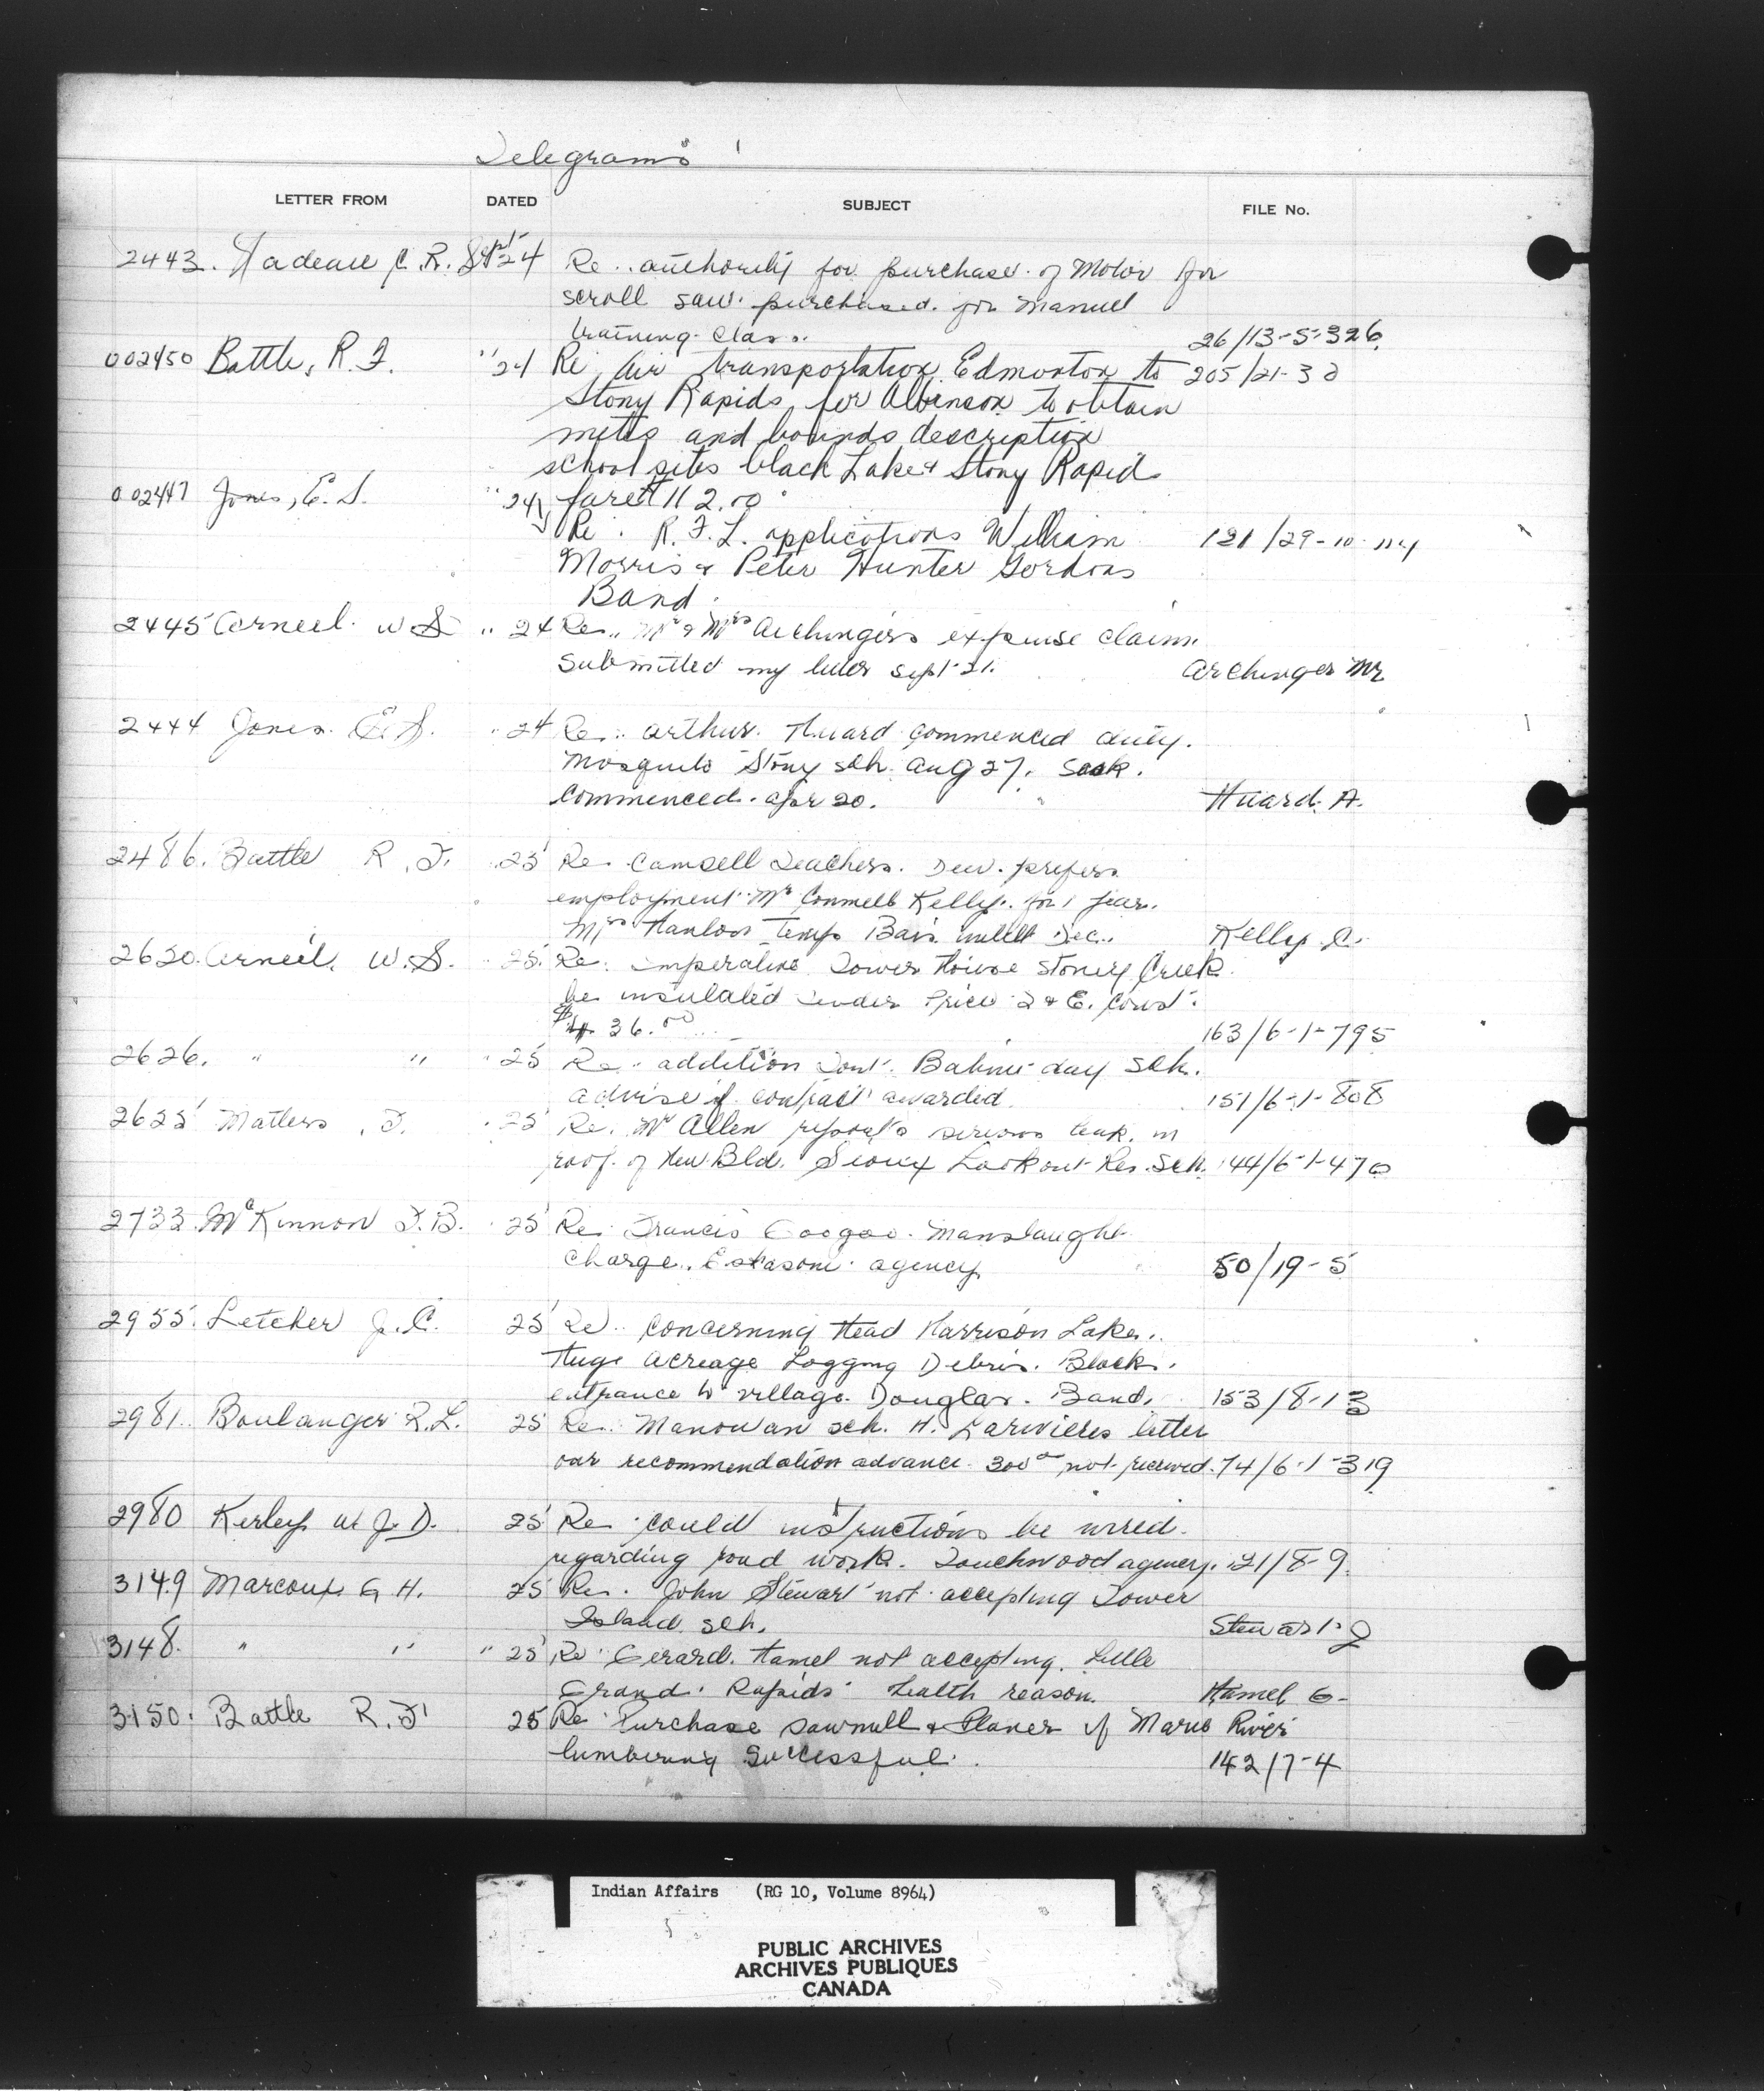 Telegrams
LETTER FROM DATED SUBJECT FILE No.
2443. Nadeau C. R. Sept 24 Re.. authority for purchase of Motor for
scroll saw purchased for Manuel
training class. 26/13-5-326
002450 Battle, R. F. " 24 Re Air transportation Edmonton to 205/21-3
Stony Rapids for Albinson to obtain
metes and bounds description
school sites black Lake & Stony Rapid
002447 Jones, E. S. " 24 fare $112.00
Re. R. F. L. applications William 121/29-10
Morris & Peter Hunter Gordons
Band.
2445 Arneil W S " 24 Re.. Mr & Mrs Aichingers expense claim
submitted my letter Sept 21. Archinger Mr
2444 Jones E. S. " 24 Re.. Arthur Huard commenced duty.
Mosquito Stony sch. Aug 27. Sask.
commenced. apr 20. Huard. A.
2486. Battle R. F. " 25 Re. Camsell Teachers. Dew. prefers
employment Mr Connell Kelly. for 1 year.
Mrs Hanlon Temp Basis until Dec.. Kelly C.
2620. Arneil, W. S. " 25 Re. imperative Tower House Stoney Creek
be insulated under Price D & E. Const.
$ 36.00 163/6-1-795
2626. " " " 25 Re. addition Babine day sch.
advise if contract awarded. 151/6-1-808
2625 Matters . F. " 25 Re. Mr Allen reports serious leak in
roof of New Bld. Sioux Lookout Res. Sch. 144/6-1-470
2733. McKinnon F. B. " 25 Re. Francis Googoo. Manslaught
charge. Eskasoni agency 50/19-5
2955. Letcher J. C. 25 Re.. concerning Head Harrison Lake.
Huge acreage Logging Debris. Block.
entrance to village. Douglas. Band. 153/8-13
2981. Boulanger R. L. 25 Re.. Manowan sch. H. Larivieres letter
our recommendation advance 300.00 not received. 74/6-1-319
2980 Kerley W J. D. 25 Re. could instructions be wired
regarding road work. Touchwood agency. 121/8-9.
3149 Marcoux G H. 25 Re. John Stewart not accepting Tower
Island sch. Stewart J
3148. " " " 25 Re Gerard. Hamel not accepting. Little
Grand. Rapids Health reason. Hamel G-
3150. Battle R. F. 25 Re Purchase sawmill & Planer if Marie River
lumbering successful. 142/7-4
Indian Affairs (RG 10, Volume 8964)
PUBLIC ARCHIVES
ARCHIVES PUBLIQUES
CANADA